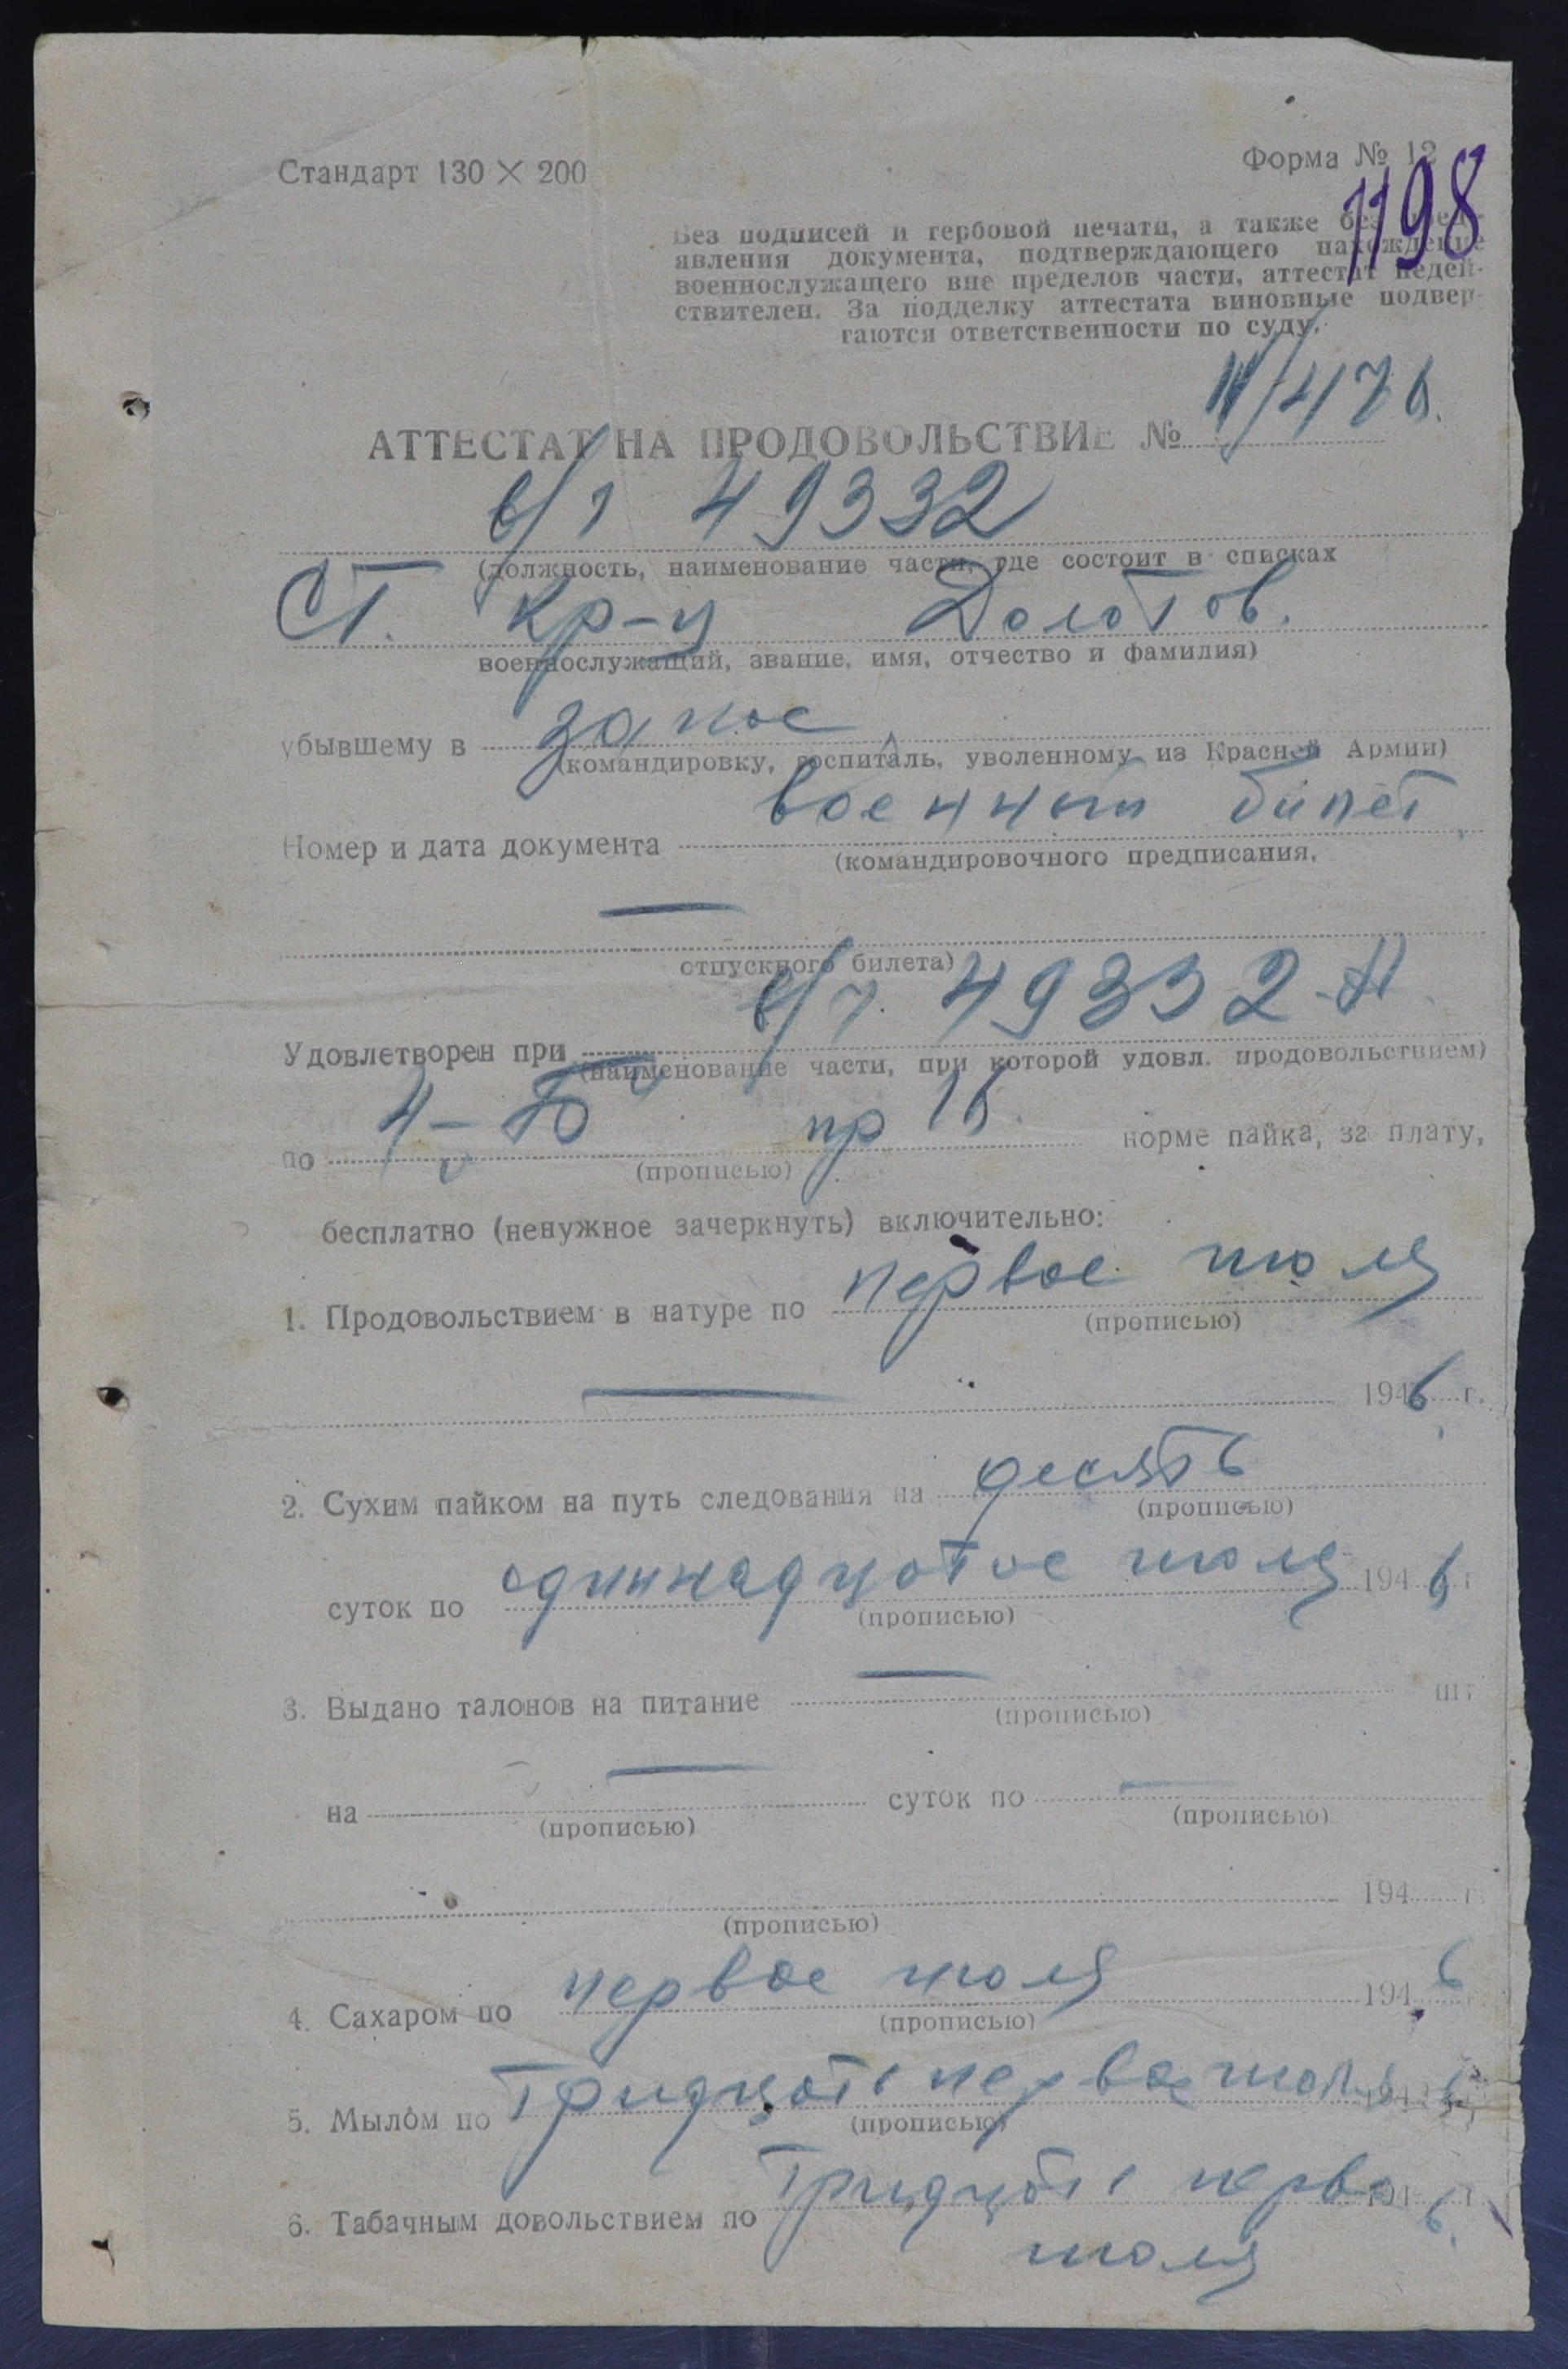 Стандарт 130 × 200
Форма № 12
1198
Без подписей и гербовой печати, а также без
явления документа, подтверждающего нахождение
военнослужащего вне пределов части, аттестат недей-
ствителен. За подделку аттестата виновные подвер-
гаются ответственности по суду.
АТТЕСТАТ НА ПРОДОВОЛЬСТВИЕ № /476.
в/ч 49332
(должность, наименование части, где состоит в списках
Ст. Кр-ц Долотов.
военнослужащий, звание, имя, отчество и фамилия)
убывшему в запас
(командировку, госпиталь, уволенному из Красной Армии)
Номер и дата документа военный билет
(командировочного предписания,
—
отпускного билета)
Удовлетворен при в/ч. 49332-
(наименование части, при которой удовл. продовольствием)
по пр 16. норме пайка, за плату,
(прописью)
бесплатно (ненужное зачеркнуть) включительно:
1. Продовольствием в натуре по первое июля
(прописью)
— 1946 г.
2. Сухим пайком на путь следования на десять
(прописью)
суток по одиннадцатое июля 1946 г
(прописью)
3. Выдано талонов на питание — шт
(прописью)
на — суток по —
(прописью) (прописью)
194 г.
(прописью)
4. Сахаром по первое июля 1946
(прописью)
5. Мылом по Тридцать первое июля
(прописью)
6. Табачным довольствием по Тридцать перво 194 6. г
июля